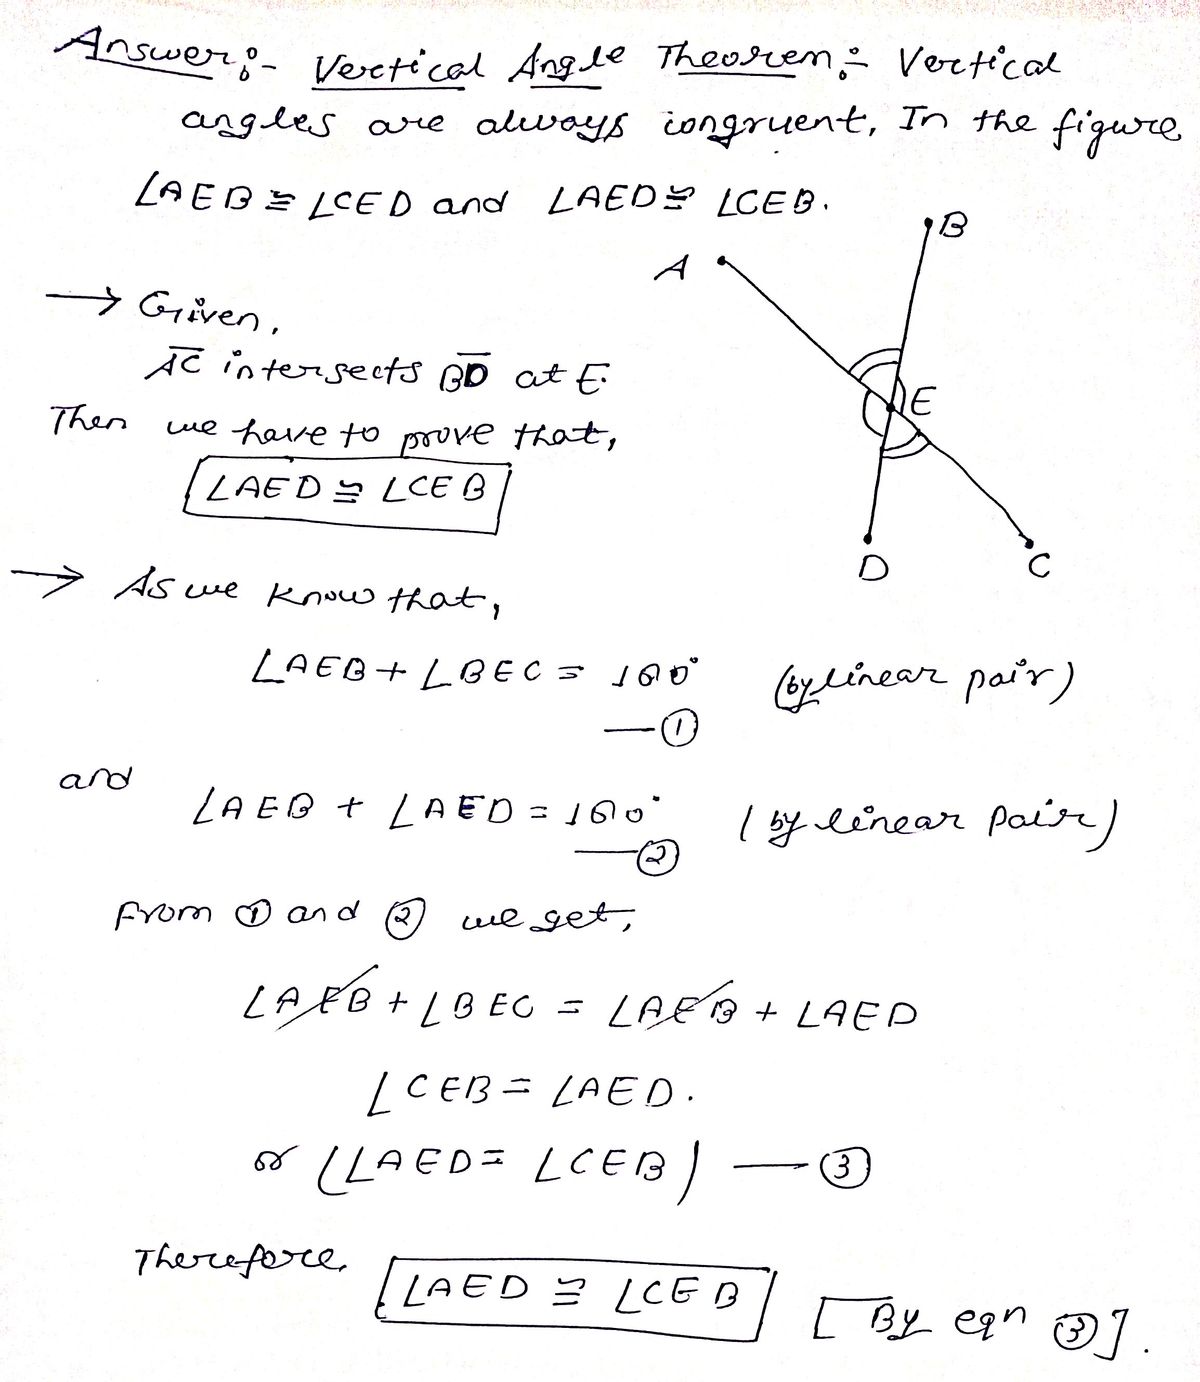 Answer:- Vertical Angle Theorem:- Vertical
angles are always congruent, In the figure
∠AEB ≅ ∠CED and ∠AED ≅ ∠CEB.
B
A
→ Given,
AC intersects BD at E.
E
Then we have to prove that,
∠AED ≅ ∠CEB
D
C
→ As we know that,
∠AEB + ∠BEC = 180° (by linear pair)
—①
and
∠AEB + ∠AED = 180° (by linear pair)
—②
From ① and ② we get,
∠AEB + ∠BEC = ∠AEB + ∠AED
∠CEB = ∠AED.
or (∠AED = ∠CEB) —③
Therefore,
∠AED ≅ ∠CEB [By eqn ③].